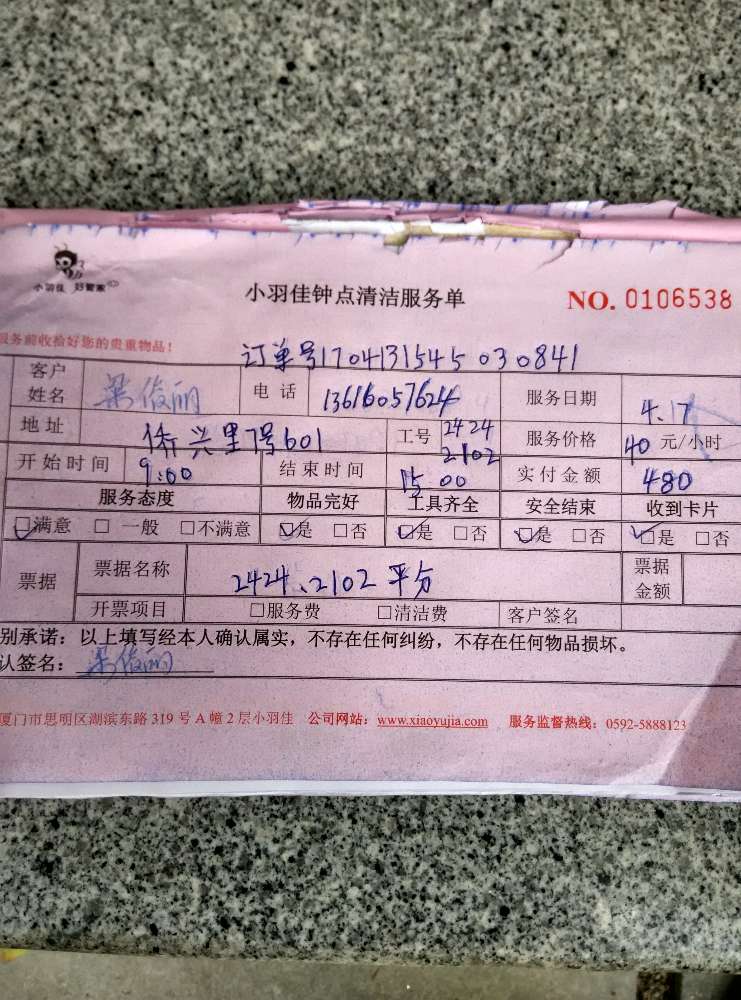 小羽佳 好管家
小羽佳钟点清洁服务单 NO. 0106538
服务前收拾好您的贵重物品!
订单号1704131545030841
客户姓名 梁俊丽 电话 13616057624 服务日期 4.17
地址 侨兴里7号601 工号 2424 2102 服务价格 40 元/小时
开始时间 9:00 结束时间 15 00 实付金额 480
服务态度 物品完好 工具齐全 安全结束 收到卡片
☑满意 □一般 □不满意 ☑是 □否 ☑是 □否 ☑是 □否 ☑是 □否
票据 票据名称 2424、2102平分 票据金额
开票项目 □服务费 □清洁费 客户签名
别承诺：以上填写经本人确认属实，不存在任何纠纷，不存在任何物品损坏。
认签名：梁俊丽
厦门市思明区湖滨东路 319 号 A 幢 2 层小羽佳 公司网站：www.xiaoyujia.com 服务监督热线：0592-5888123